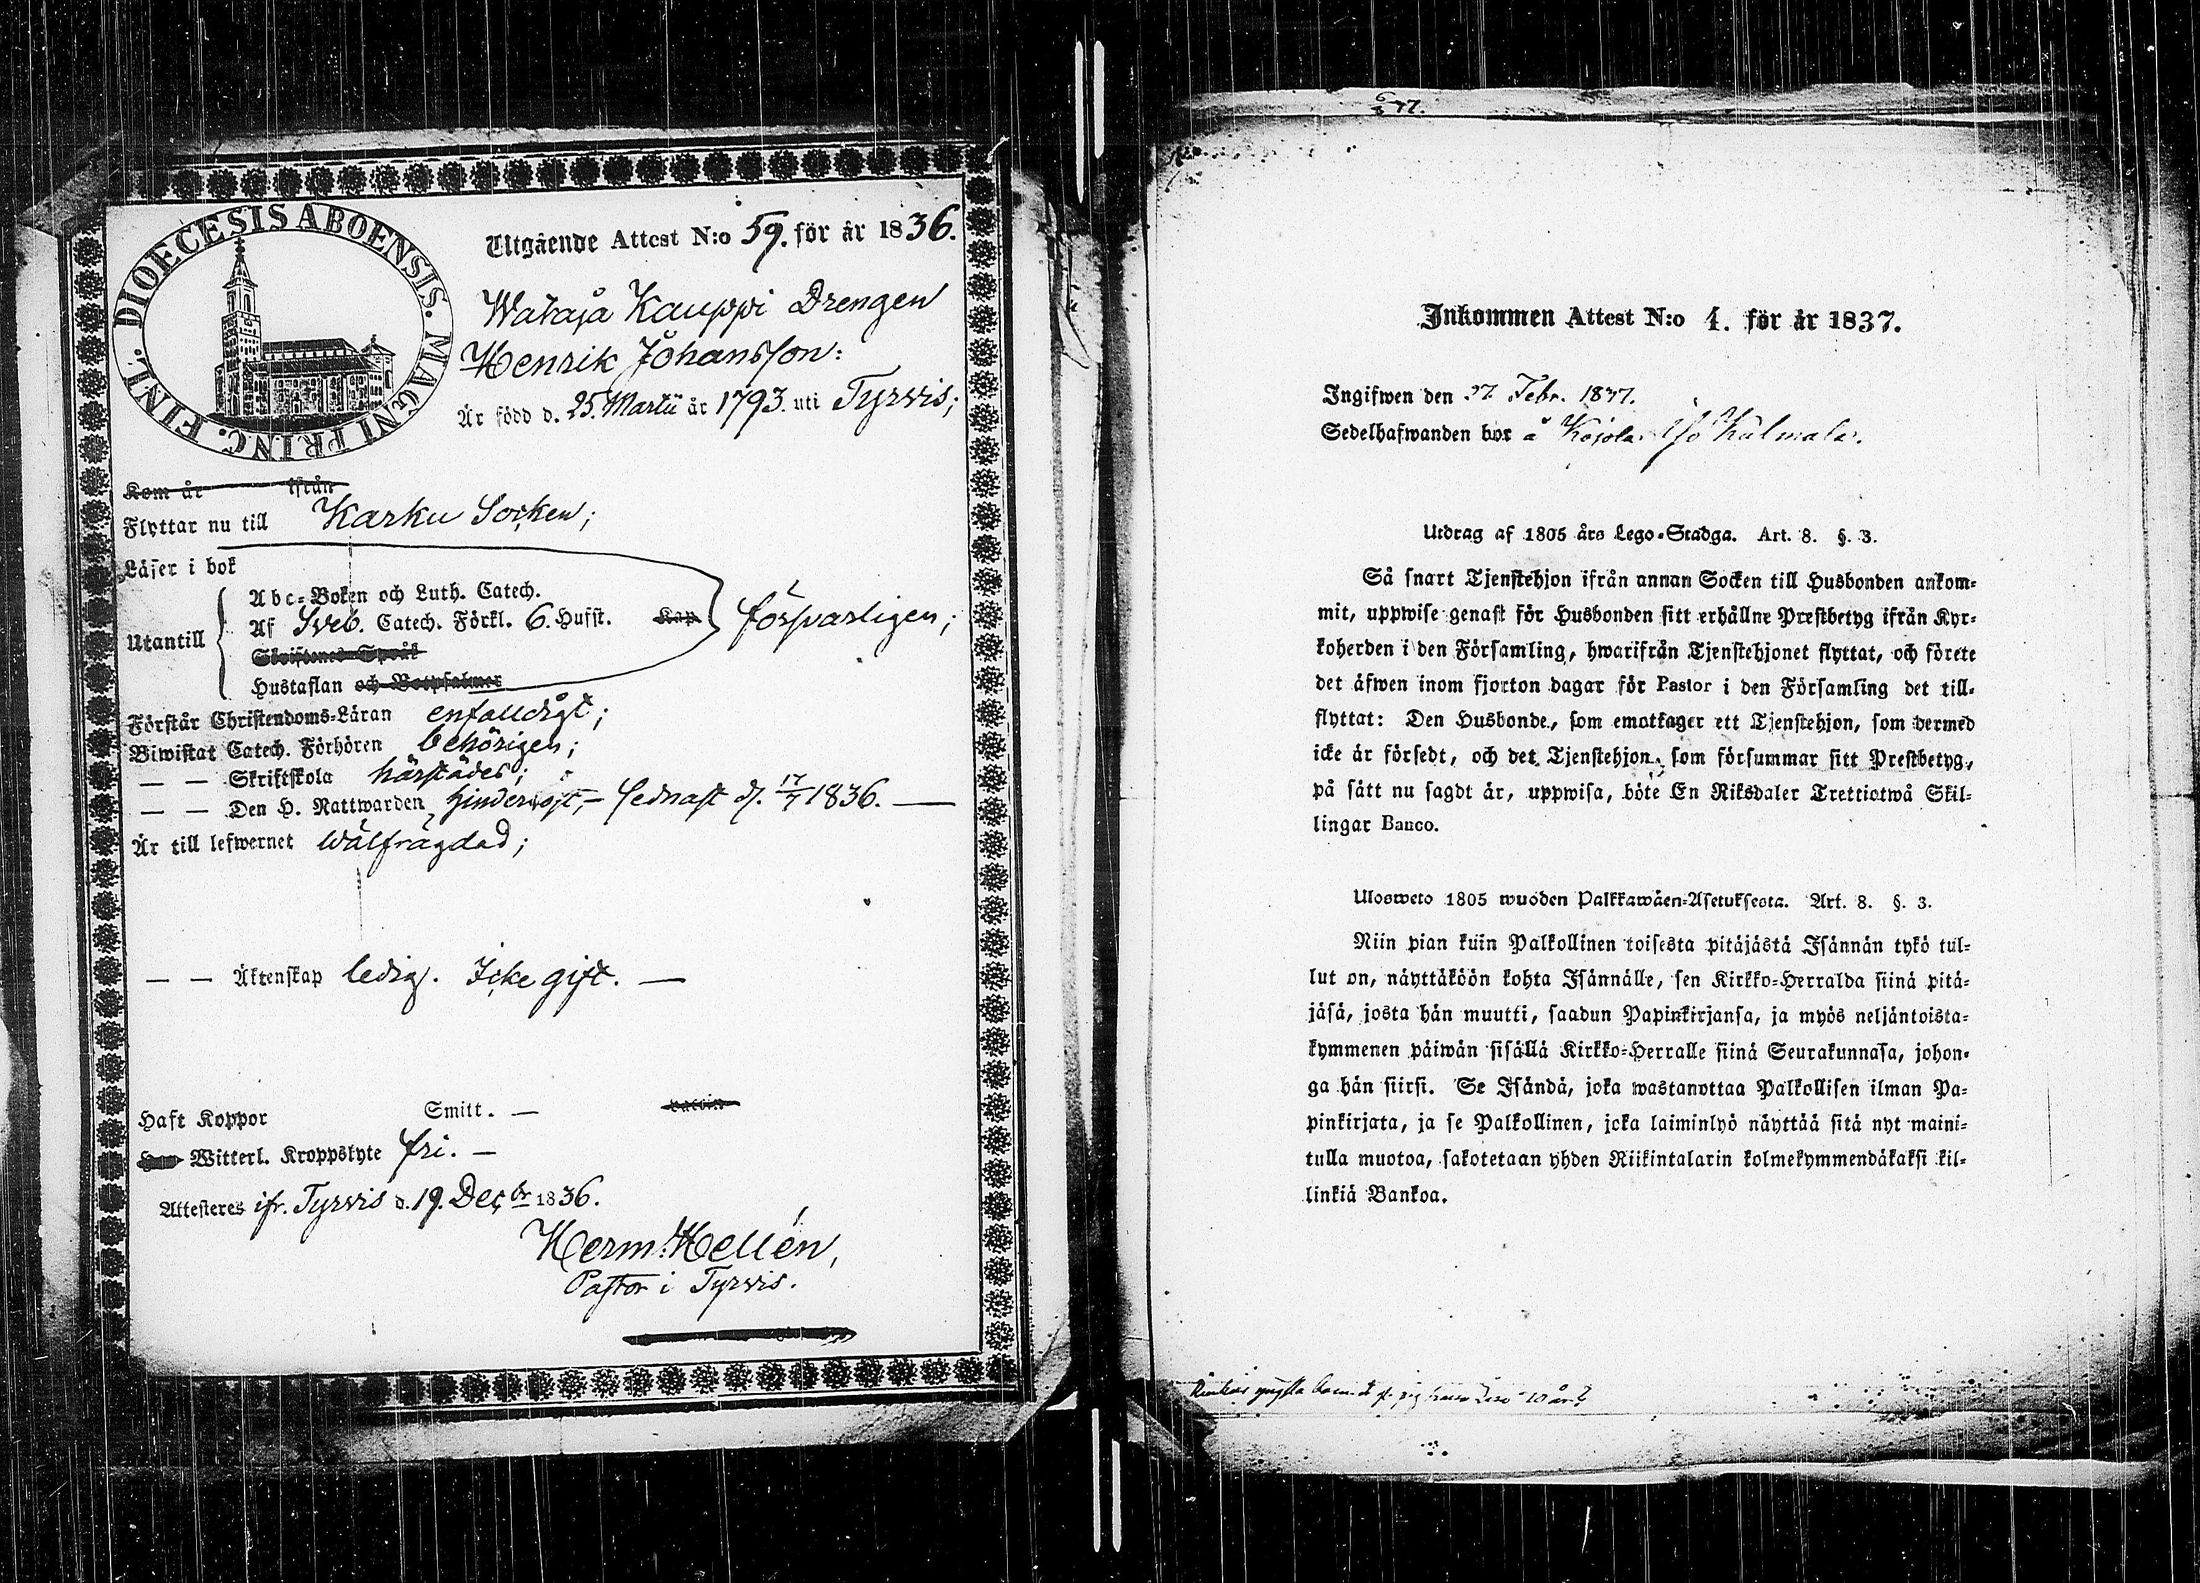 DIOECESIS ABOENSIS. MAGNI PRINC. FINL.
Utgående Attest N:o 59. för år 1836.
Wataja Kauppi Drengen
Henrik Johansson:
Är född d. 25. Martii år 1793. uti Tyrvis;
Kom år ifrån
Flyttar nu till Karku Socken;
Läser i bok
Utantill
Abc-Boken och Luth. Catech.
Af Sveb. Catech. Förkl. 6. Hufst. Kap försvarligen;
Skriftenes Språk
Hustaflan och Botpsalmer
Förstår Christendoms-Läran enfalldigt;
Biwistat Catech. Förhören behörigen;
— — Skriftskola härstädes;
— — Den H. Nattwarden hinderlöst, – sednast d. 17/7 1836. —
Är till lefwernet wälfrägdad;
— — Äktenskap ledig. Icke gift. —
Haft Koppor Smitt. —
Witterl. Kroppslyte fri. —
Attesteres ifr. Tyrvis d. 19. Dec:br 1836.
Herm: Hellén,
Pastor i Tyrvis.
Inkommen Attest N:o 4. för år 1837.
Ingifwen den 27 Febr. 1837.
Sedelhafwanden bor å Kojola Iso Kulmala.
Utdrag af 1805 års Lego-Stadga. Art. 8. §. 3.
Så snart Tjenstehjon ifrån annan Socken till Husbonden ankom-
mit, uppwise genast för Husbonden sitt erhållne Prestbetyg ifrån Kyr-
koherden i den Församling, hwarifrån Tjenstehjonet flyttat, och förete
det äfwen inom fjorton dagar för Pastor i den Församling det till-
flyttat: Den Husbonde, som emottager ett Tjenstehjon, som dermed
icke är försedt, och det Tjenstehjon, som försummar sitt Prestbetyg,
på sätt nu sagdt är, uppwisa, böte En Riksdaler Trettiotwå Skil-
lingar Banco.
Ulosweto 1805 wuoden Palkkawäen-Asetuksesta. Art. 8. §. 3.
Niin pian kuin Palkollinen toisesta pitäjästä Isännän tykö tul-
lut on, näyttäköön kohta Isännälle, sen Kirkko-Herralda siinä pitä-
jäsä, josta hän muutti, saadun Papinkirjansa, ja myös neljäntoista-
kymmenen päiwän sisällä Kirkko-Herralle siinä Seurakunnasa, johon-
ga hän siirsi. Se Isändä, joka wastanottaa Palkollisen ilman Pa-
pinkirjata, ja se Palkollinen, joka laiminlyö näyttää sitä nyt maini-
tulla muotoa, sakotetaan yhden Riikintalarin kolmekymmendäkaksi kil-
linkiä Bankoa.